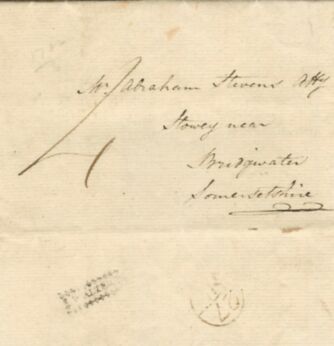 Mr. Abraham Stevens Atty
Stowey near
Bridgwater
Somersetshire
4